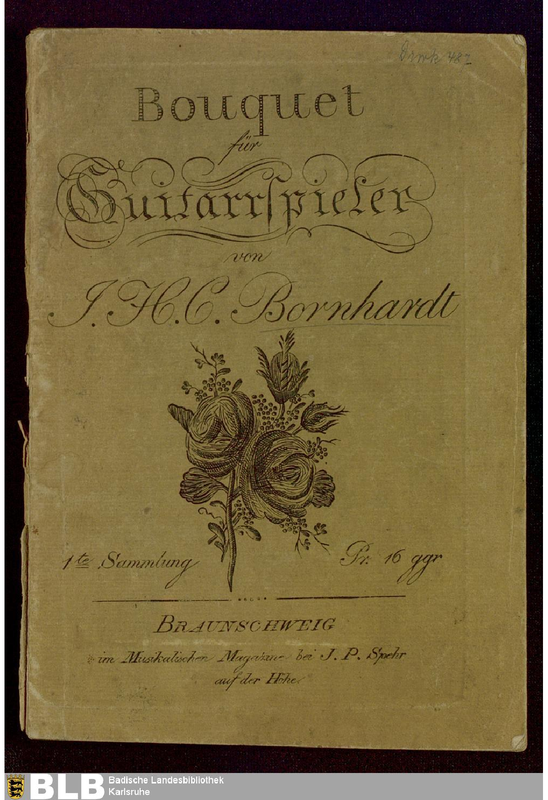 Druck 487
Bouquet
für
Guitarrspieler
von
J. H. C. Bornhardt
1te Sammlung
Pr. 16 ggr
BRAUNSCHWEIG
im Musikalischen Magazine bei J. P. Spehr
auf der Höhe
BLB Badische Landesbibliothek
Karlsruhe